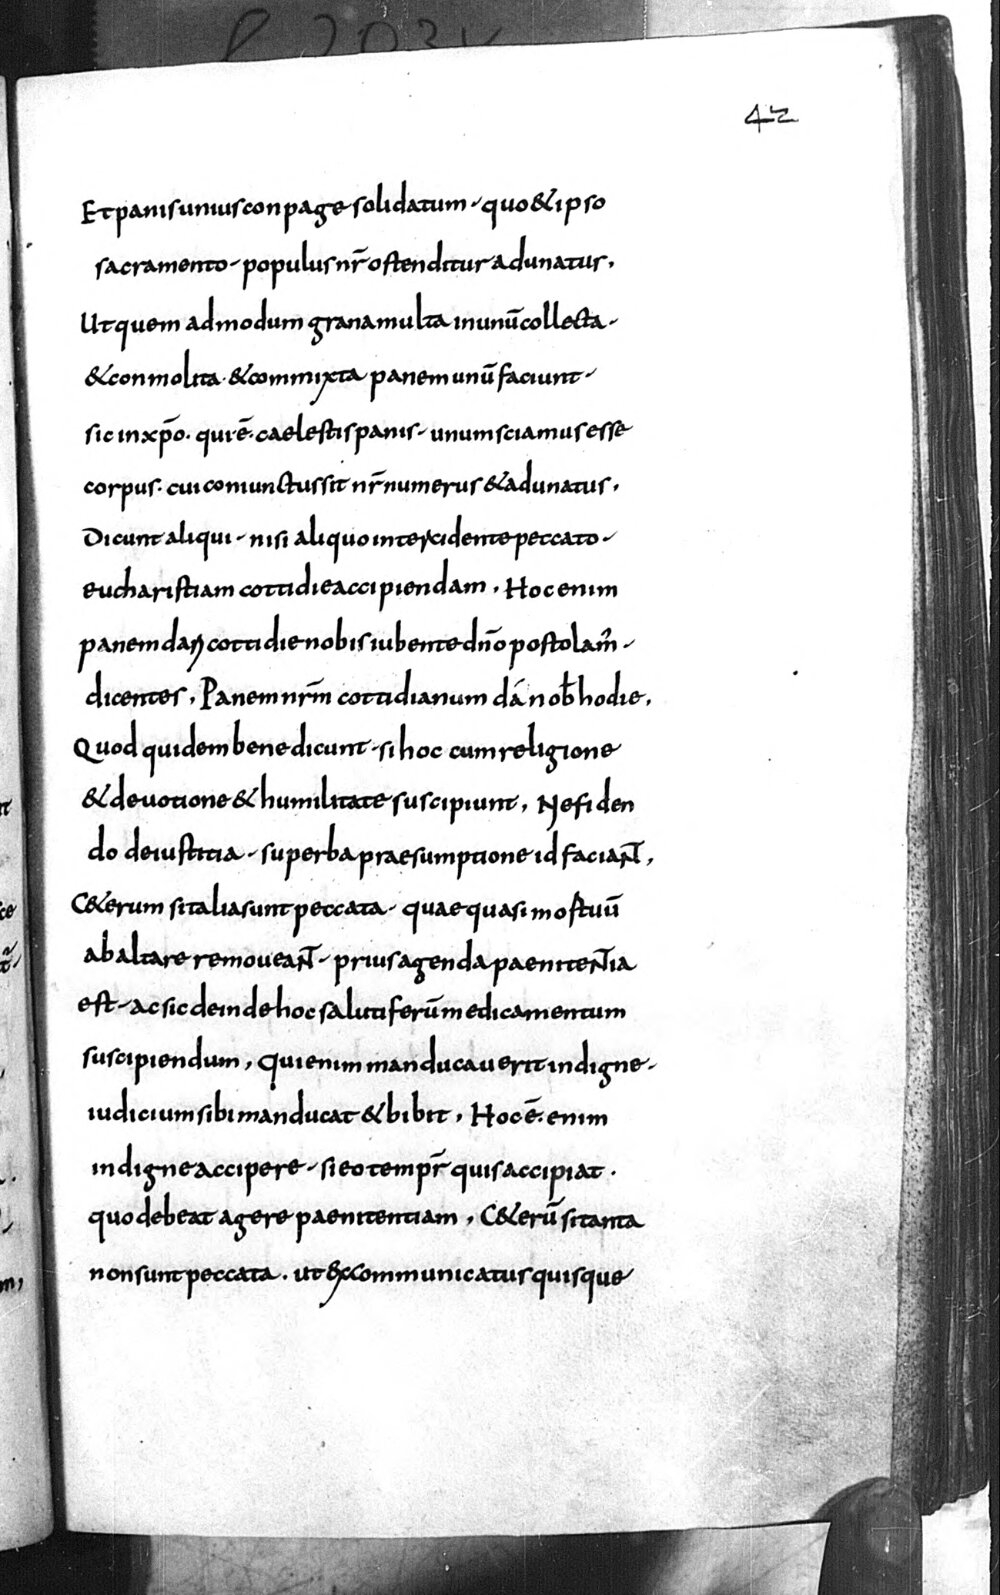 42
Et panis unius conpage solidatum · quo & ipso
sacramento · populus nr̄ ostenditur adunatus,
Ut quem admodum grana multa in unū collecta ·
& conmolita · & commixta panem unū faciunt ·
sic in xp̄o · qui ē · caelestis panis · unum sciamus esse
corpus · cui coniunctus sit nr̄ numerus & adunatus,
Dicunt aliqui · nisi aliquo intercidente peccato ·
eucharistiam cottidie accipiendam, Hoc enim
panem dari cottidie nobis iubente dn̄o postolam̄ ·
dicentes, Panem nr̄m cottidianum dá nob̄ hodie,
Quod quidem bene dicunt · si hoc cum religione
& deuotione & humilitate suscipiunt, Ne fiden
do de iustitia · superba praesumptione id faciaNT̄,
C&erum si talia sunt peccata · quae quasi mostuū
ab altare remoueaNT̄ · prius agenda paeniteNTia
est · ac sic deinde hoc salutiferū medicamentum
suscipiendum, Qui enim manducauerit indigne ·
iudicium sibi manducat & bibit, Hoc ē · enim
indigne accipere · si eo tempr̄ quis accipiat ·
quo debeat agere paenitentiam, C&erū si tanta
non sunt peccata · ut excommunicatus quisque